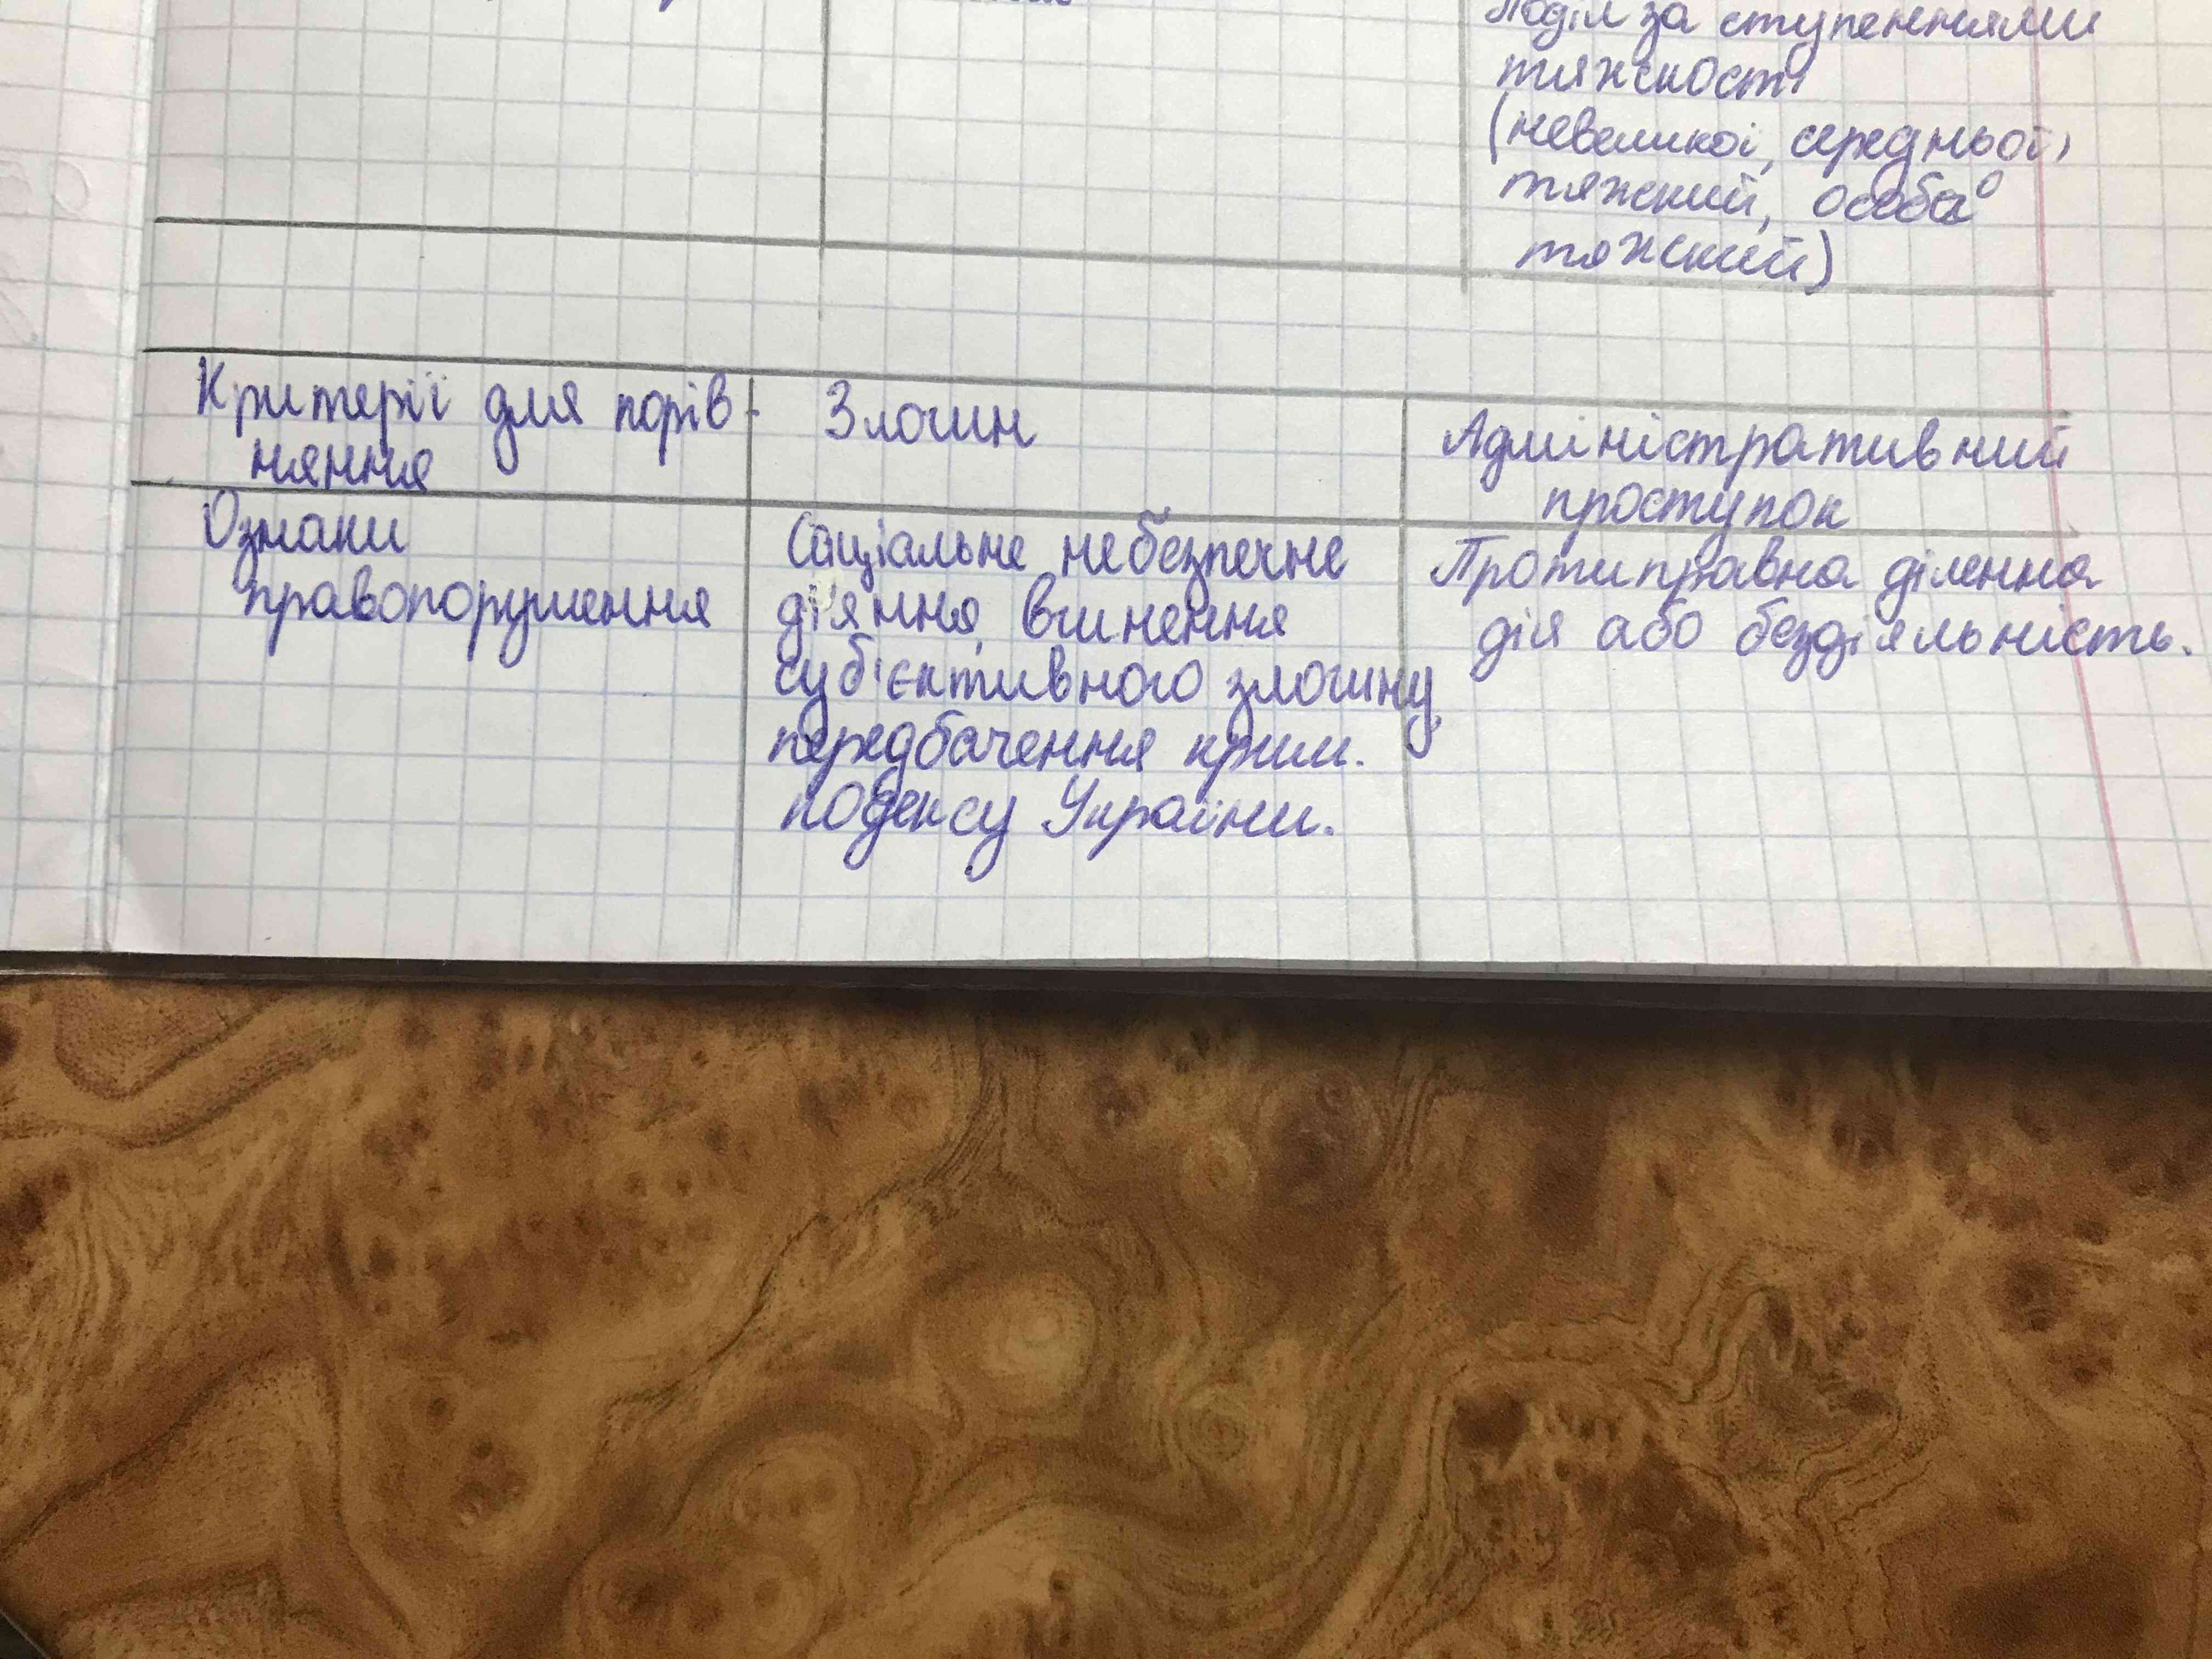 Поділ за ступеннями
тяжкості
(невеликої, середньої,
тяжкий, особо
тяжкий)
Критерії для порів-
няння
Злочин
Адміністративний
проступок
Ознаки
правопорушення
Соціальне небезпечне
діяння, вчинення
суб'єктивного злочину,
передбачення крим.
кодексу України.
Протиправна діленна
дія або бездіяльність.